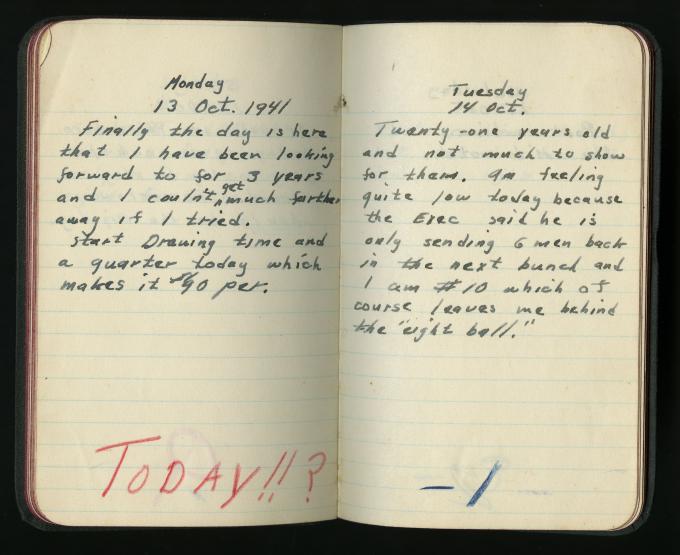 Monday
13 Oct. 1941
Finally the day is here
that I have been looking
forward to for 3 years
and I couldn't get much farther
away if I tried.
Start Drawing time and
a quarter today which
makes it $90 per.
TODAY!!?
Tuesday
14 Oct.
Twenty-one years old
and not much to show
for them. Am feeling
quite low today because
the Exec said he is
only sending 6 men back
in the next bunch and
I am #10 which of
course leaves me behind
the "eight ball."
-1